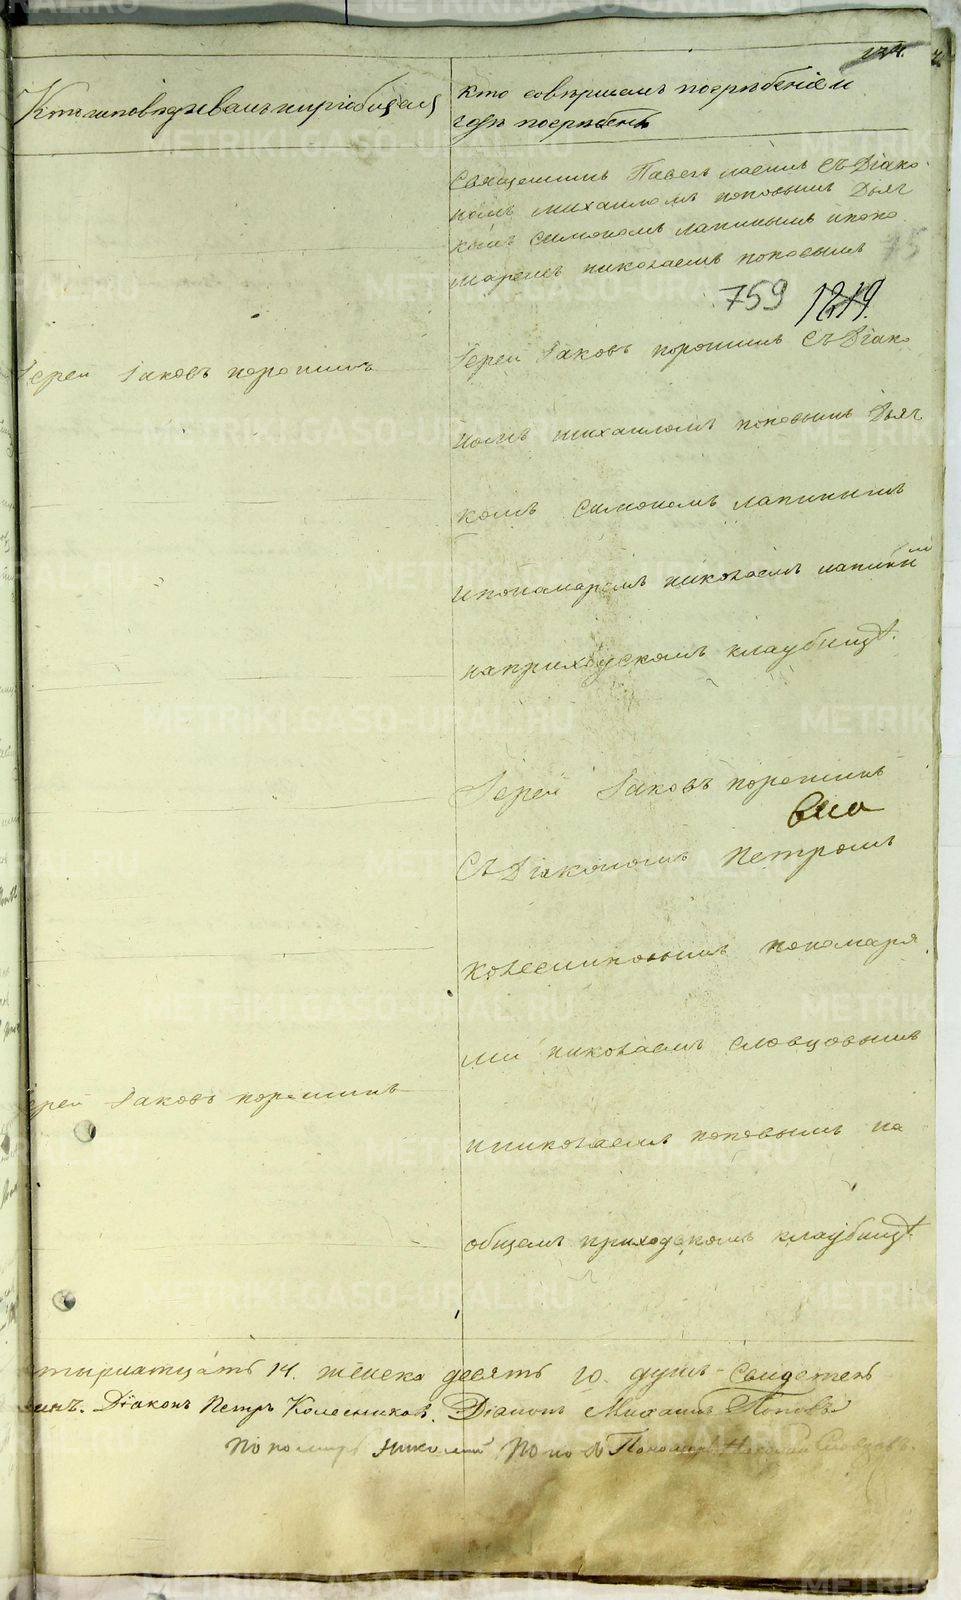 124.
Кто исповѣдывалъ и приобщалъ
кто совершалъ погребѣніе и
гдѣ погребены
Священникъ Павелъ съ Діако
номъ михаиломъ поповымъ Дьяч
комъ симономъ лапинымъ и поно
маремъ николаемъ поповымъ
75
759 1219.
Іерей Іаковъ порошинъ
Іерей Іаковъ порошинъ съ Діако
номъ михаиломъ поповымъ Дьяч
комъ симономъ лапинымъ
и пономаремъ николаемъ лапинымъ
на приходскомъ клаубищѣ.
Іерей Іаковъ порошинъ
съ Діакономъ Петромъ
колесниковымъ пономаря
ми николаемъ словцовымъ
Іерей Іаковъ порошинъ
и николаемъ поповымъ на
общемъ приходскомъ клаубищѣ.
тырнатцать 14. женска десять 10. душъ
инъ. Діаконъ Петръ Колесниковъ. Діаконъ Михаилъ Поповъ
Пономарь Николай Попо Пономарь Николай Словцовъ